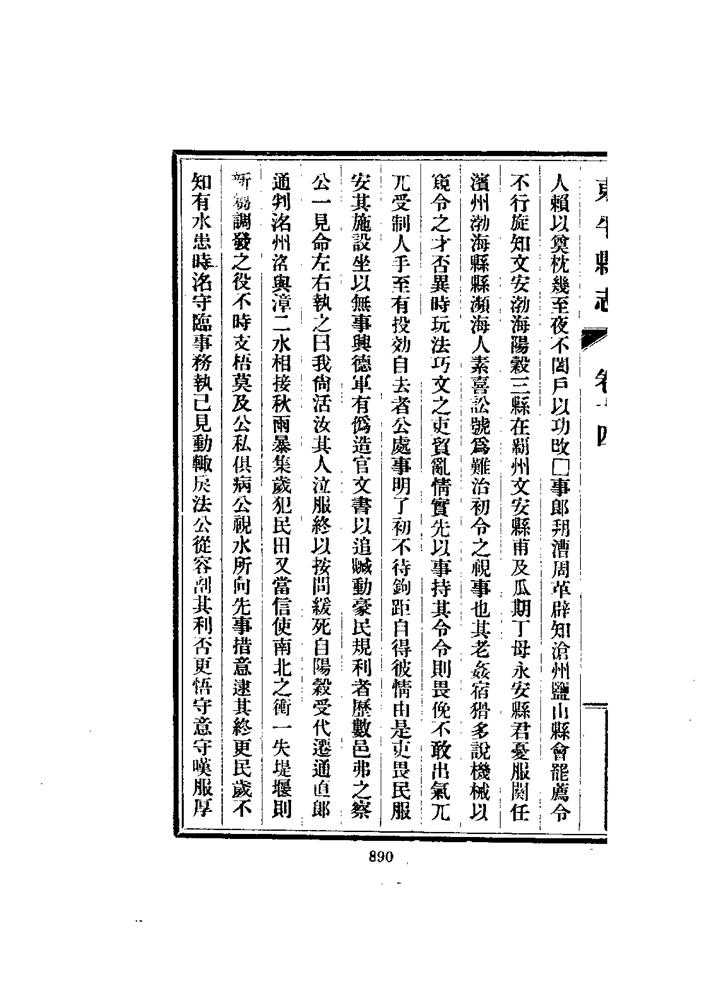 東牟縣志 卷十四
人賴以奠枕幾至夜不閉戶以功改□事郞朔漕周革辟知滄州鹽山縣會罷薦令
不行旋知文安渤海陽穀三縣在霸州文安縣甫及瓜期丁母永安縣君憂服闋任
濱州渤海縣縣瀕海人素喜訟號爲難治初令之視事也其老姦宿猾多說機械以
窺令之才否異時玩法巧文之吏貿亂情實先以事持其令令則畏俛不敢出氣兀
兀受制人手至有投効自去者公處事明了初不待鉤距自得彼情由是吏畏民服
安其施設坐以無事興德軍有僞造官文書以追贓動豪民規利者歷數邑弗之察
公一見命左右執之曰我尙活汝其人泣服終以按問緩死自陽穀受代遷通直郞
通判洺州洺與漳二水相接秋雨暴集歲犯民田又當信使南北之衝一失堤堰則
新芻調發之役不時支梧莫及公私俱病公視水所向先事措意逮其終更民歲不
知有水患時洺守臨事務執己見動輒戾法公從容剖其利否更悟守意守嘆服厚
890